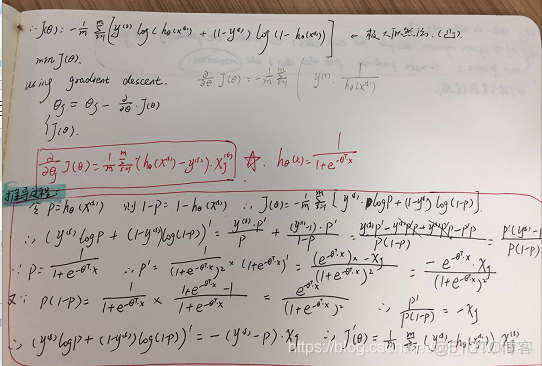 ∴ J(θ) = -1/m Σ_{i=1}^{m} [y^(i) log(h_θ(x^(i)) + (1-y^(i)) log(1-h_θ(x^(i)))]
min J(θ).
using gradient descent. ∂/∂θ J(θ) = -1/m Σ_{i=1}^{m} ( y^(i) · 1/h_θ(x^(i))
θ_j = θ_j - ∂/∂θ · J(θ)
{J(θ).
∂/∂θ_j J(θ) = 1/m Σ_{i=1}^{m} (h_θ(x^(i)) - y^(i)) · x_j^(i) ☆. h_θ(x) = 1/(1+e^{-θ^T x})
推导过程
令 P = h_θ(x^(i)) 则 1-P = 1-h_θ(x^(i)) ∴ J(θ) = -1/m Σ_{i=1}^{m} [y^(i) · log P + (1-y^(i)) log(1-P)].
∴ (y^(i) log P + (1-y^(i)) log(1-P))' = y^(i)·P'/P + (y^(i)-1)·P'/(1-P) =
∵ P = 1/(1+e^{-θ^T x}) ∴ P' = 1/(1+e^{-θ^T x})² × (1+e^{-θ^T x})' = (e^{-θ^T x}) × -x_j/(1+e^{-θ^T x})² = -e^{-θ^T x} · x_j/(1+e^{-θ^T x})²
又∵ P(1-P) = 1/(1+e^{-θ^T x}) × (1+e^{-θ^T x}-1)/(1+e^{-θ^T x}) = e^{-θ^T x}/(1+e^{-θ^T x})² ∴ P'/P(1-P) = -x_j
∴ (y^(i) log P + (1-y^(i)) log(1-P))' = -(y^(i)-P) · x_j ∴ J'(θ) = 1/m Σ_{i=1}^{m} (y^(i) - h_θ(x^(i))) x_j^(i)